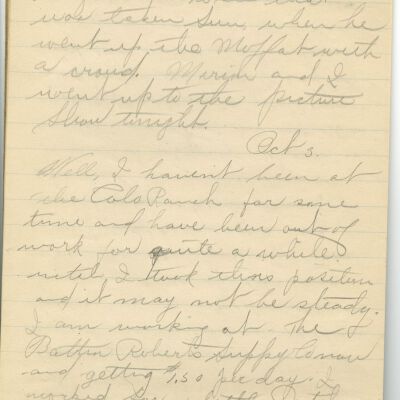 was taken Sun. when he
went up the Moffat with
a crowd. Mirim and I
went up to the picture
show tonight.
Oct 3.
Well, I havent been at
the Colo Ranch for some
time and have been out of
work for quite a while.
until I took this position
and it may not be steady.
I am working at The
Battin Roberts Supply Co now
and getting $1.50 per day. I
worked